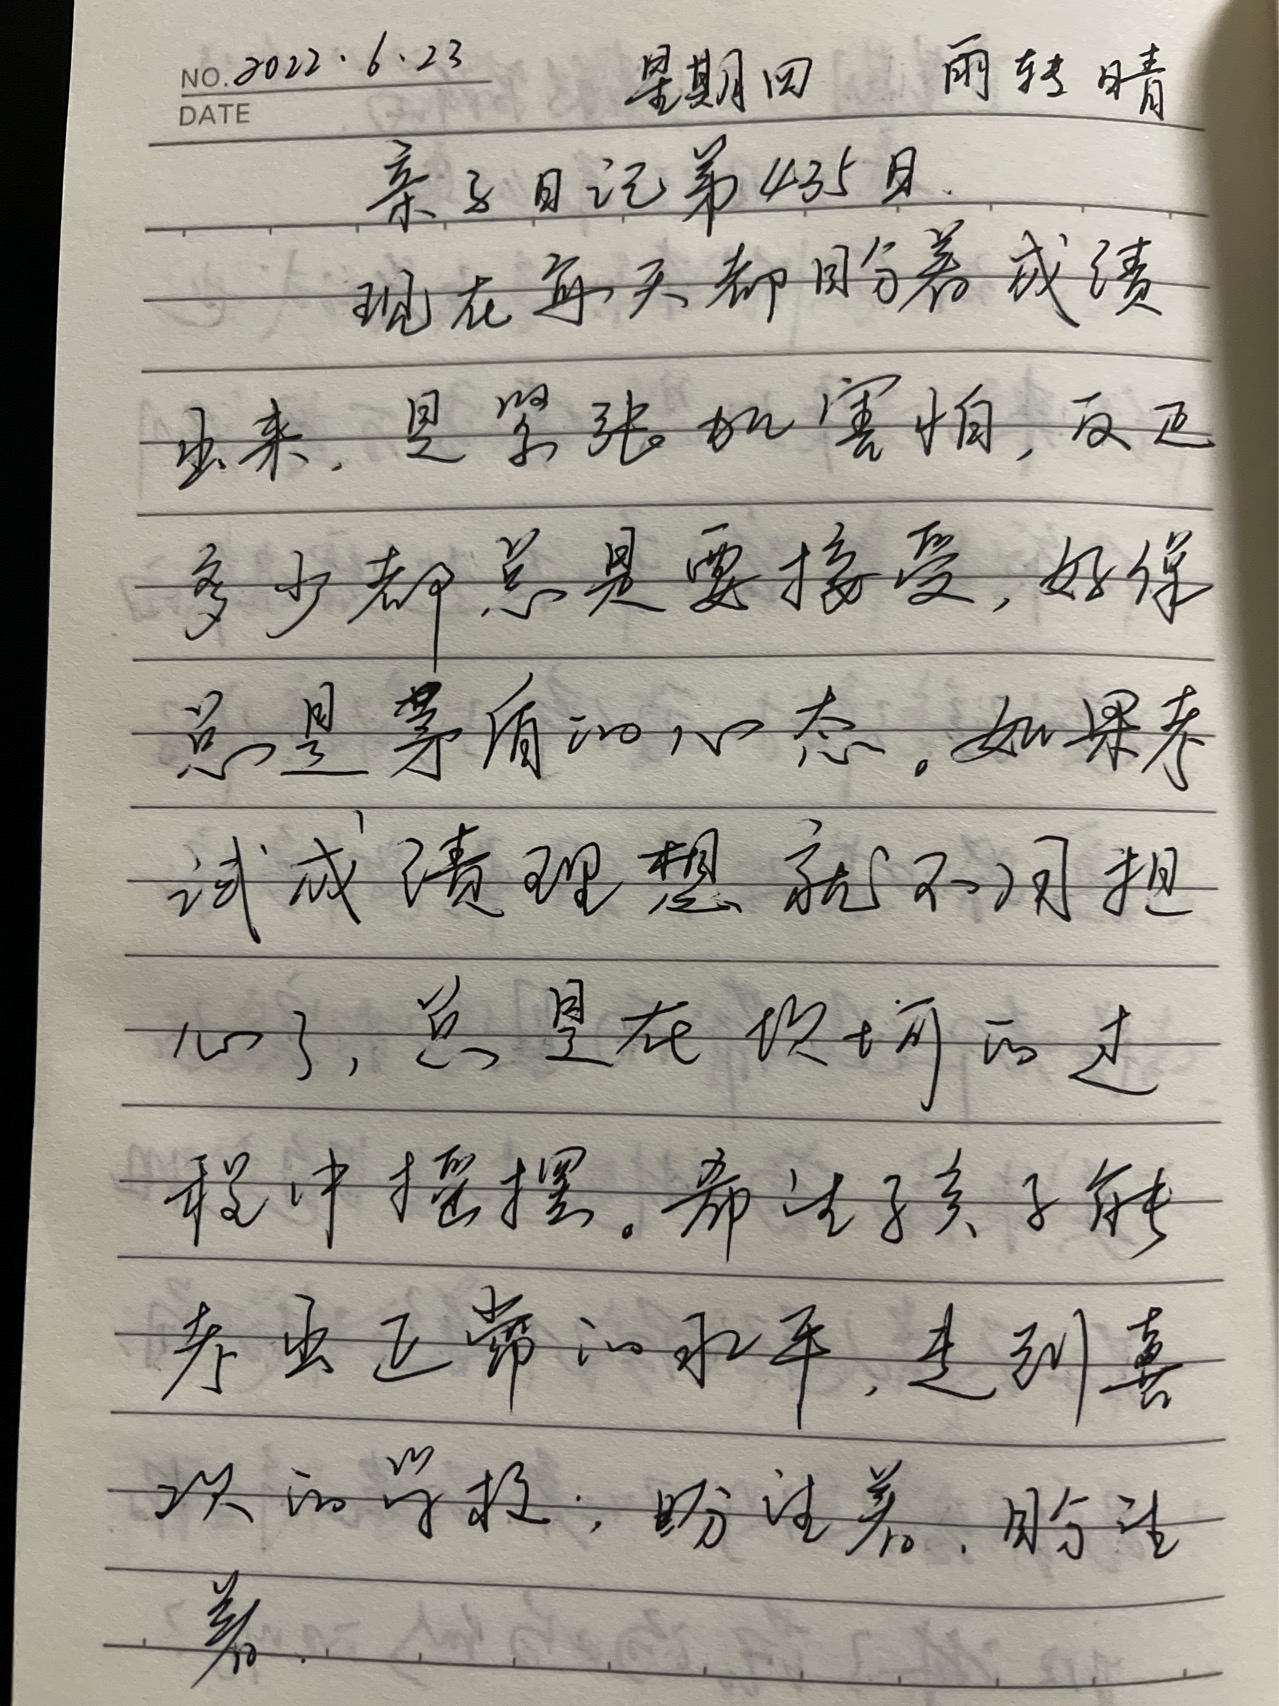 NO. 2022.6.23 星期四 雨转晴
DATE
亲子日记第435日.
现在每天都盼着成绩
出来,是紧张加害怕,反正
多少都总是要接受,好像
总是矛盾的心态。如果考
试成绩理想就不用担
心了,总是在坎坷的过
程中摇摆。希望孩子能
考出正常的水平,走到喜
欢的学校,盼望着、盼望
着.